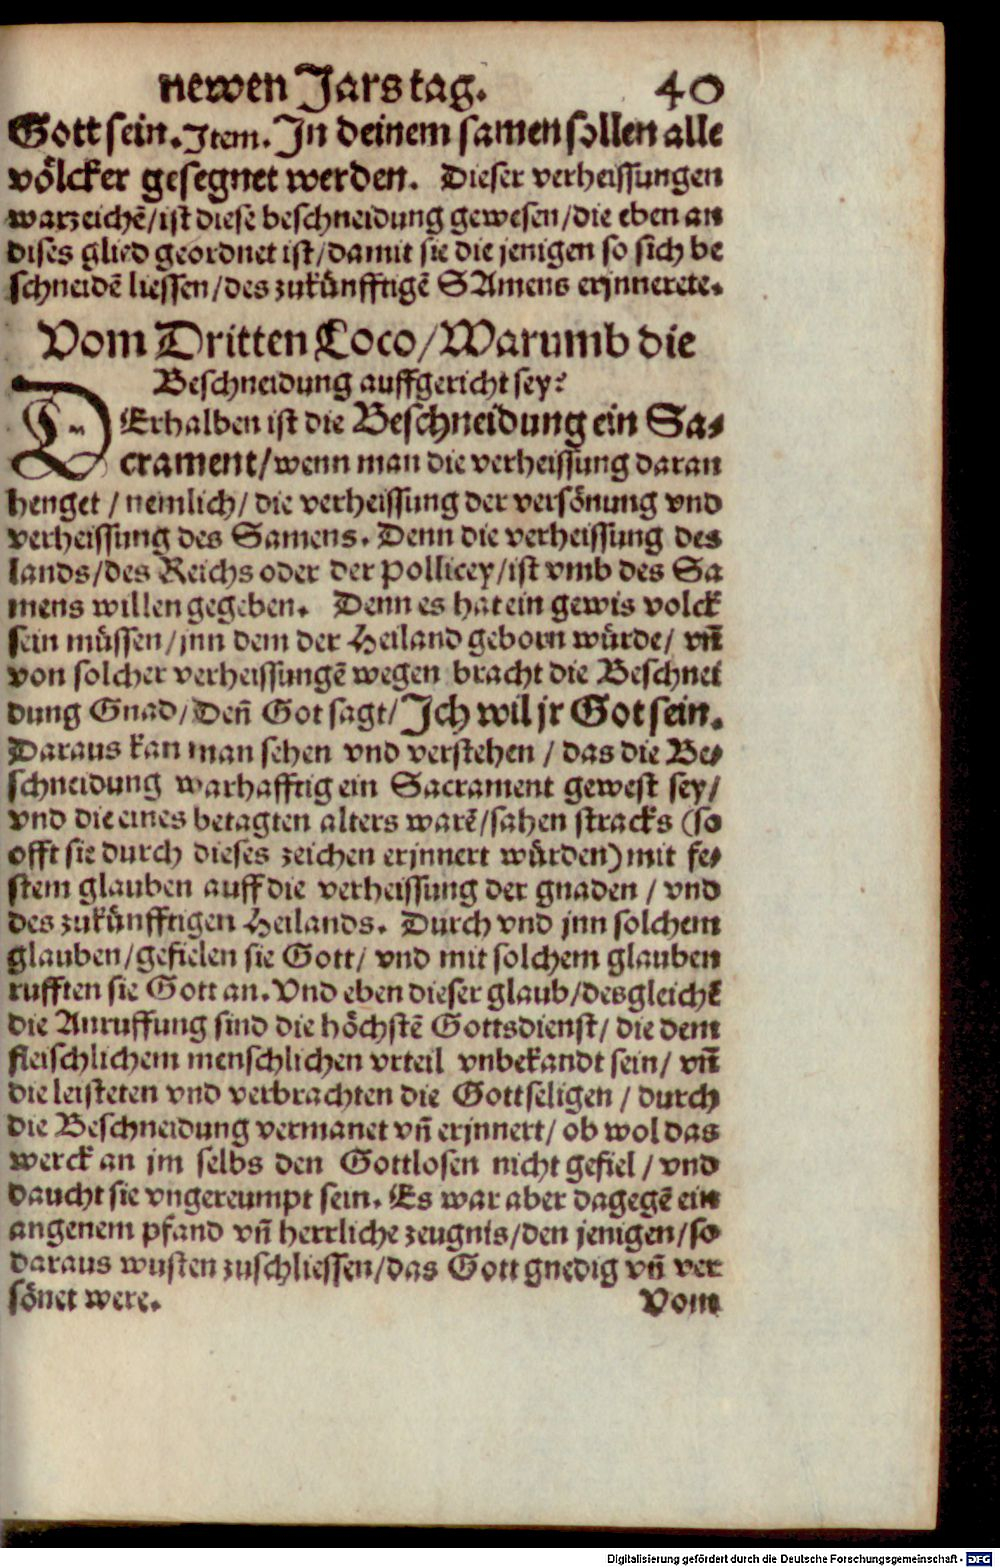 newen Jars tag. 40
Gott sein. Item. In deinem samen sollen alle
völcker gesegnet werden. Dieser verheissungen
warzeichē/ist diese beschneidung gewesen/die eben an
dises glied geordnet ist/damit sie die jenigen so sich be
schneidē liessen/des zukünfftigē SAmens erjnnerete.
Vom Dritten Loco/Warumb die
Beschneidung auffgericht sey?
DErhalben ist die Beschneidung ein Sa⸗
crament/wenn man die verheissung daran
henget/nemlich/die verheissung der versönung vnd
verheissung des Samens. Denn die verheissung des
lands/des Reichs oder der Pollicey/ist vmb des Sa
mens willen gegeben. Denn es hat ein gewis volck
sein müssen/jnn dem der Heiland geborn würde/vn̄
von solcher verheissungē wegen bracht die Beschnei
dung Gnad/Den̄ Got sagt/Ich wil jr Got sein.
Daraus kan man sehen vnd verstehen/das die Be⸗
schneidung warhafftig ein Sacrament gewest sey/
vnd die eines betagten alters warē/sahen stracks (so
offt sie durch dieses zeichen erjnnert würden) mit fe⸗
stem glauben auff die verheissung der gnaden/vnd
des zukünfftigen Heilands. Durch vnd jnn solchem
glauben/gefielen sie Gott/vnd mit solchem glauben
rufften sie Gott an. Vnd eben dieser glaub/desgleichē
die Anruffung sind die höchstē Gottsdienst/die dem
fleischlichem menschlichen vrteil vnbekandt sein/vn̄
die leisteten vnd verbrachten die Gottseligen/durch
die Beschneidung vermanet vn̄ erjnnert/ob wol das
werck an jm selbs den Gottlosen nicht gefiel/vnd
daucht sie vngereumpt sein. Es war aber dagegē ein
angenem pfand vn̄ herrliche zeugnis/den jenigen/so
daraus wusten zuschliessen/das Gott gnedig vn̄ ver
sönet were. Vom
Digitalisierung gefördert durch die Deutsche Forschungsgemeinschaft - DFG